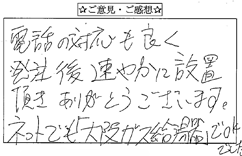 ☆ご意見・ご感想☆
電話の対応も良く
発注後速やかに設置
頂きありがとうございます。
ネットでも「大阪ガス給湯器」でok
でした